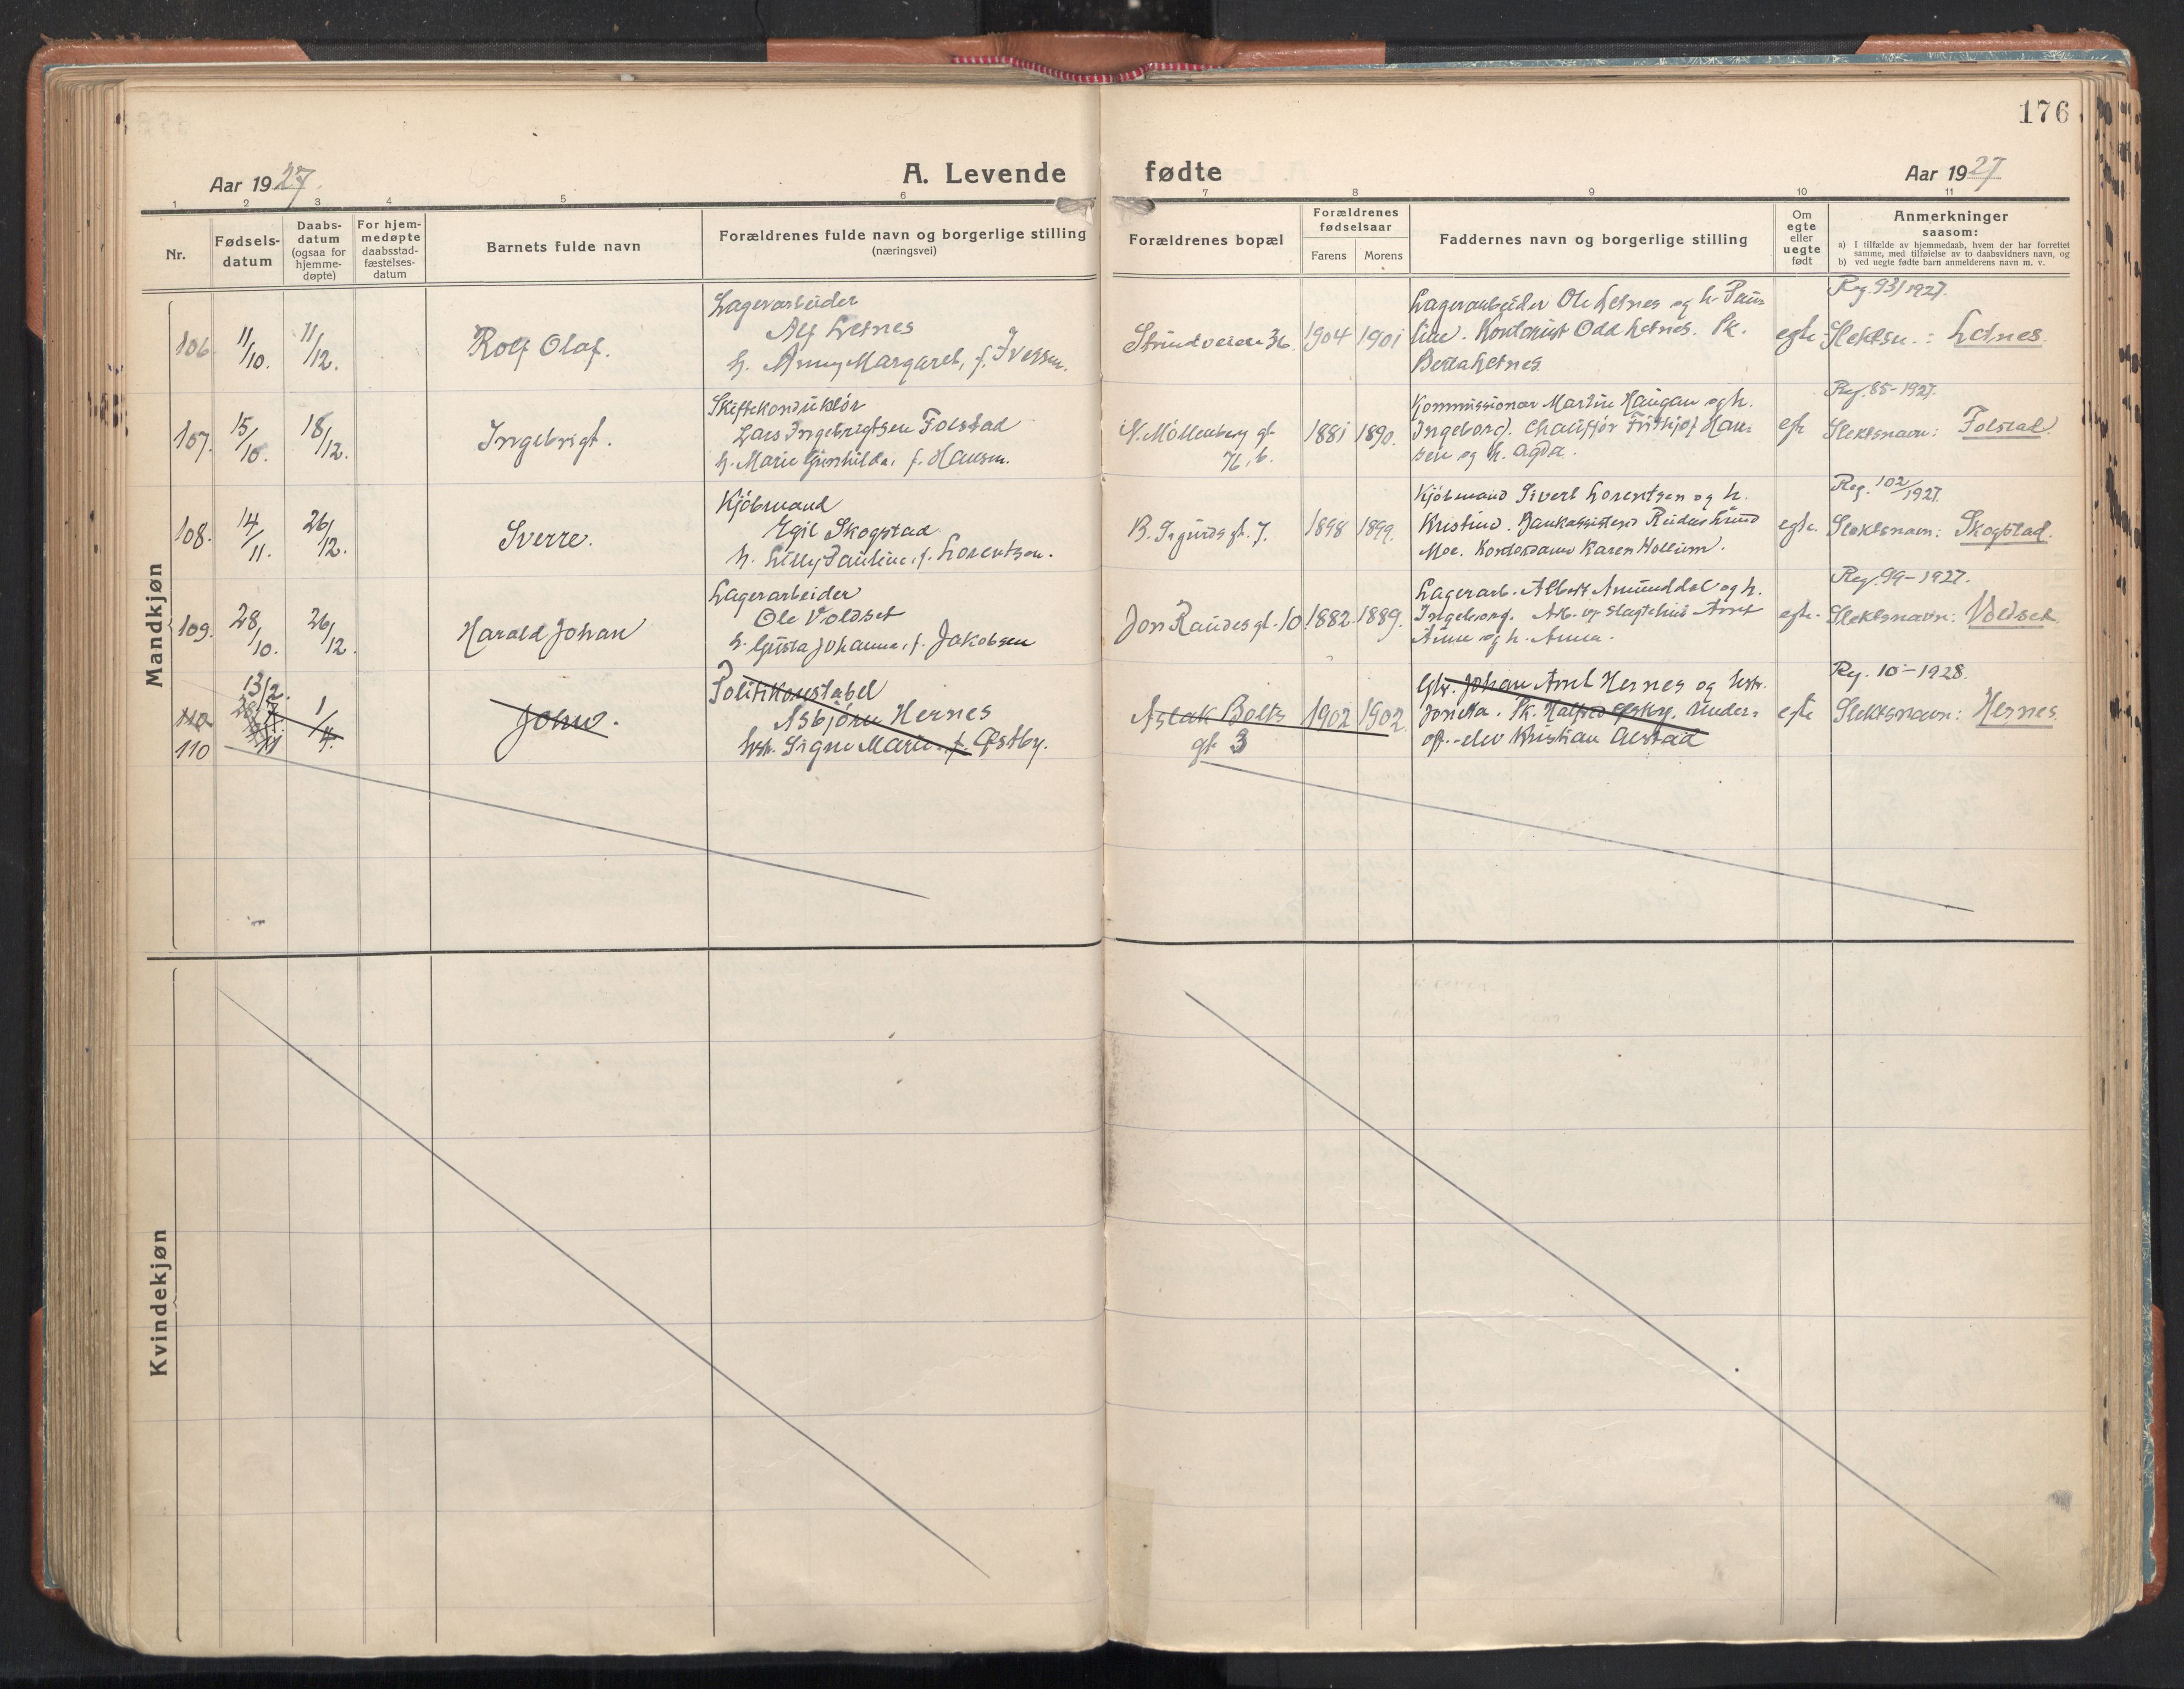 176
Aar 1927.
A. Levende fødte
Aar 1927
1 2 3 4 5 6 7 8 9 10 11
Nr.
Fødsels-
datum
Daabs-
datum
(ogsaa for
hjemme-
døpte)
For hjem-
medøpte
daabsstad-
fæstelses-
datum
Barnets fulde navn
Forældrenes fulde navn og borgerlige stilling
(næringsvei)
Forældrenes bopæl
Forældrenes
fødselsaar
Farens Morens
Faddernes navn og borgerlige stilling
Om
egte
eller
uegte
født
Anmerkninger
saasom:
a) I tilfælde av hjemmedaab, hvem der har forrettet
samme, med tilføielse av to daabsvidners navn, og
b) ved uegte fødte barn anmelderens navn m. v.
Mandkjøn
106 11/10. 11/12. Rolf Olaf.
Lagerarbeider
Alf Letnes
h. Anny Margaret, f. Iversen.
Strindveien 36. 1904 1901
Lagerarbeider Ole Letnes og h. Pau-
line. Kontorist Odd Letnes. Pk.
Berta Letnes.
egte
Reg. 93/1927.
Slektsn.: Letnes.
107. 15/10. 18/12. Ingebrigt.
Skiftekonduktör
Lars Ingebrigtsen Folstad
h. Marie Gunhilda, f. Hansen.
N. Möllenberg gt.
76. b.
1881 1890.
Kommissionær Martin Haugan og h.
Ingeborg. Chaufför Frithjof Han-
sen og h. Agda.
egte
Reg. 85-1927.
Slektsnavn: Folstad.
108. 14/11. 26/12. Sverre.
Kjöbmand
Egil Skogstad
h. Lilly Pauline, f. Lorentsen.
B. Sigurds gt. 7. 1898 1899.
Kjöbmand Sivert Lorentsen og h.
Kristine. Bankassistent Reidar Lund
Moe. Kontordame Karen Hollum.
egte.
Reg. 102/1927.
Slektsnavn: Skogstad.
109. 28/10. 26/12. Harald Johan
Lagerarbeider
Ole Voldset
h. Gusta Johanna, f. Jakobsen
Jon Raudes gt. 10 1882. 1889.
Lagerarb. Albert Amunddal og h.
Ingeborg. Arb. og Slagtehus Arnt
Aune og h. Anna.
egte.
Reg. 99-1927.
Slektsnavn: Voldset
110
110
13/2.
1/4.
John.
Politikonstabel
Asbjörn Hernes
hstr. Signe Marie f. Østby.
Aslak Bolts
gt. 3
1902 1902.
Gbr. Johan Arnt Hernes og hstr.
Jonetta. Pk. Halfrid Østby. Under-
off.-elev Kristian Alstad
egte
Reg. 10-1928.
Slektsnavn: Hernes.
Kvindekjøn